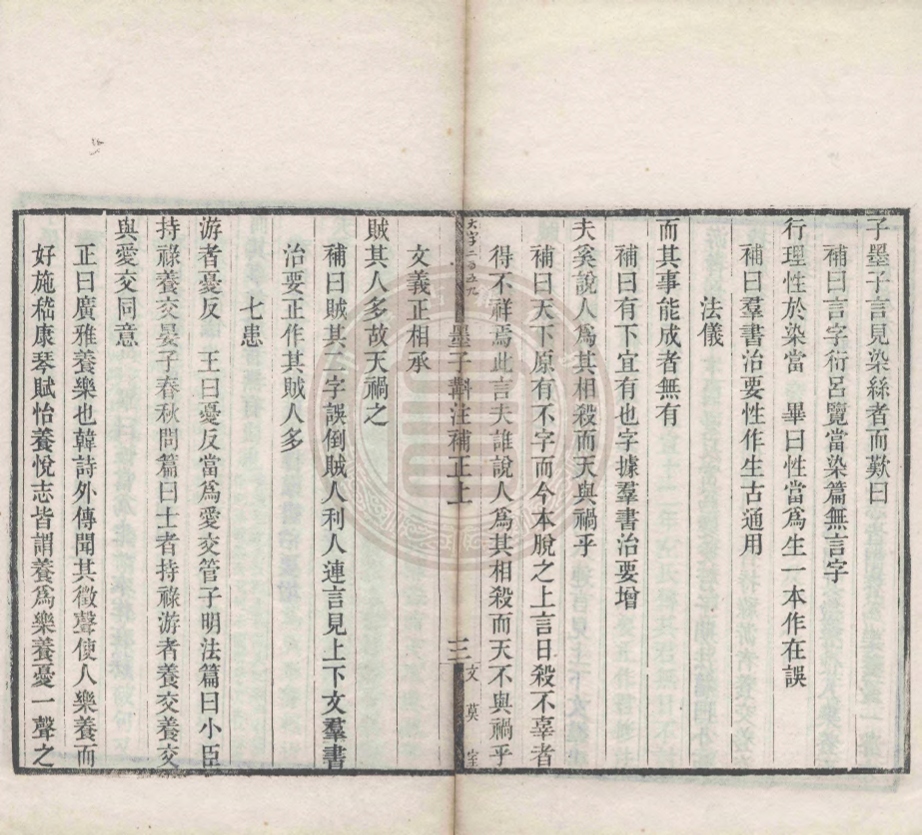 子墨子言見染絲者而歎曰
補曰言字衍呂覽當染篇無言字
行理性於染當　畢曰性當爲生一本作在誤
補曰羣書治要性作生古通用
法儀
而其事能成者無有
補曰有下宜有也字據羣書治要增
夫奚說人爲其相殺而天與禍乎
補曰天下原有不字而今本脫之上言日殺不辜者
得不祥焉此言夫誰說人爲其相殺而天不與禍乎
大字二百五九
墨子斠注補正上
三
文莫室
文義正相承
賊其人多故天禍之
補曰賊其二字誤倒賊人利人連言見上下文羣書
治要正作其賊人多
七患
游者憂反　王曰憂反當爲愛交管子明法篇曰小臣
持祿養交晏子春秋問篇曰士者持祿游者養交養交
與愛交同意
正曰廣雅養樂也韓詩外傳聞其徵聲使人樂養而
好施嵇康琴賦怡養悅志皆謂養爲樂養憂一聲之